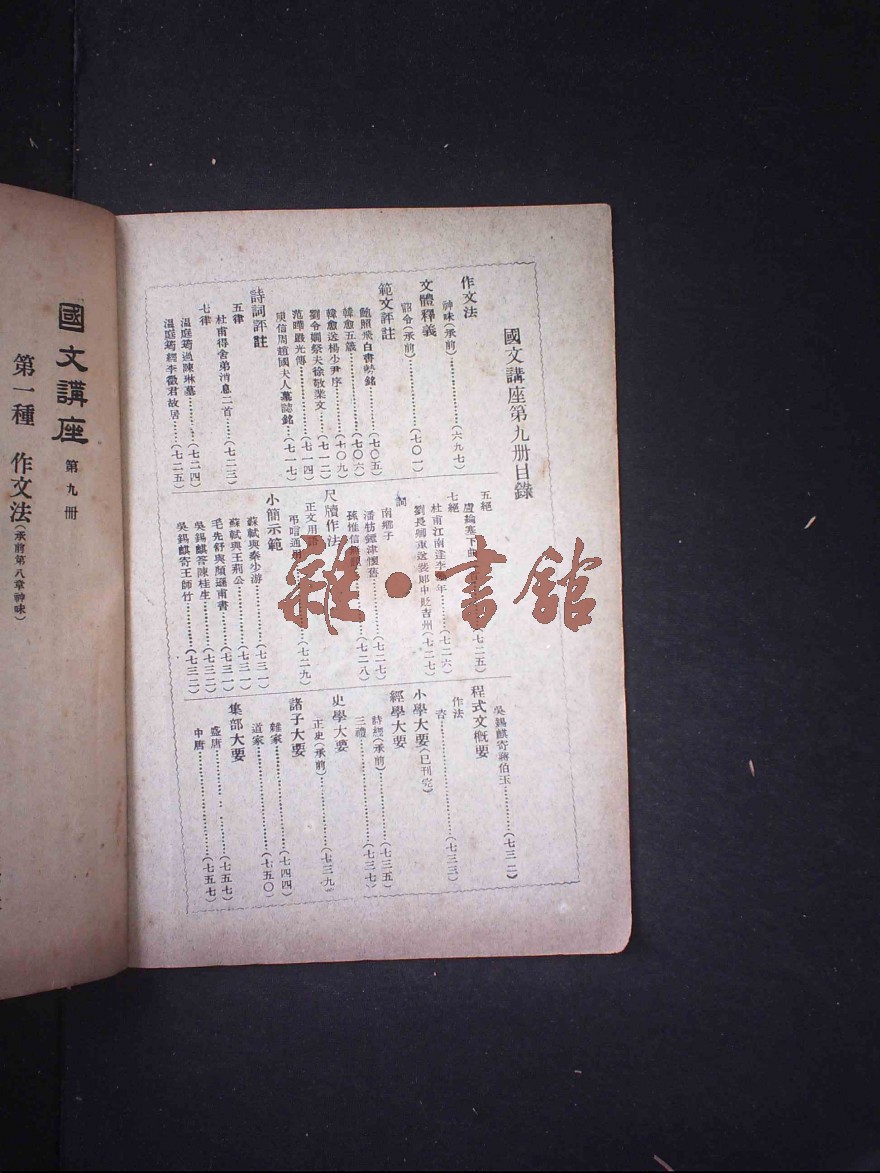 國文講座第九册目錄
作文法
神味(承前)……(六九七)
文體釋義
詔令(承前)……(七〇一)
範文評註
鮑照飛白書勢銘……(七〇五)
韓愈五箴……(七〇六)
韓愈送楊少尹序……(七〇九)
劉令嫻祭夫徐敬業文……(七一二)
范曄嚴光傳……(七一四)
庾信周趙國夫人墓誌銘……(七一七)
詩詞評註
五律
杜甫得舍弟消息二首……(七二三)
七律
溫庭筠過陳琳墓……(七二四)
溫庭筠經李徵君故居……(七二五)
五絕
盧綸塞下曲……(七二五)
七絕
杜甫江南逢李龜年……(七二六)
劉長卿重送裴郎中貶吉州(七二七)
詞
南鄉子
潘牥鐔津懷舊……(七二七)
孫惟信……(七二八)
尺牘作法
正文用語
弔唁通用……(七二九)
小簡示範
蘇軾與秦少游……(七三一)
蘇軾與王荊公……(七三一)
毛先舒與顏遜甫書……(七三一)
吳錫麒答陳桂生……(七三二)
吳錫麒寄王師竹……(七三二)
吳錫麒寄蔣伯玉……(七三二)
程式文概要
作法
咨……(七三三)
小學大要(已刊完)
經學大要
詩經(承前)……(七三五)
三禮……(七三七)
史學大要
正史(承前)……(七三九)
諸子大要
雜家……(七四四)
道家……(七五〇)
集部大要
盛唐……(七五七)
中唐……(七五七)
國文講座 第九册
第一種 作文法(承前第八章神味)
雜·書舘